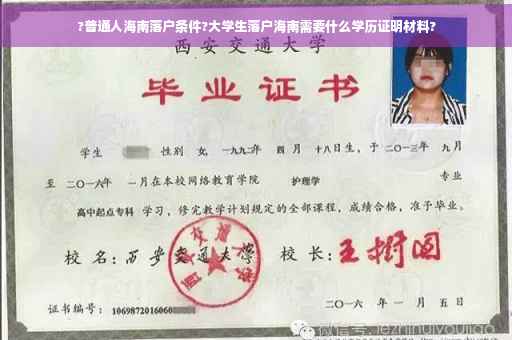 ?普通人海南落户条件?大学生落户海南需要什么学历证明材料?
西安交通大学
毕业证书
学生 性别 女, 一九九二年 四月 十八日生, 于二〇一三年 九月
至 二〇一六年 一月在本校网络教育学院 护理学 专业
高中起点专科 学习, 修完教学计划规定的全部课程, 成绩合格, 准予毕业。
校 名: 西安交通大学 校 长: 王树国
西安交通大学
证书编号: 1069872016060
二〇一六 年 一 月 五 日
微信号: jezhinuiyoujiao